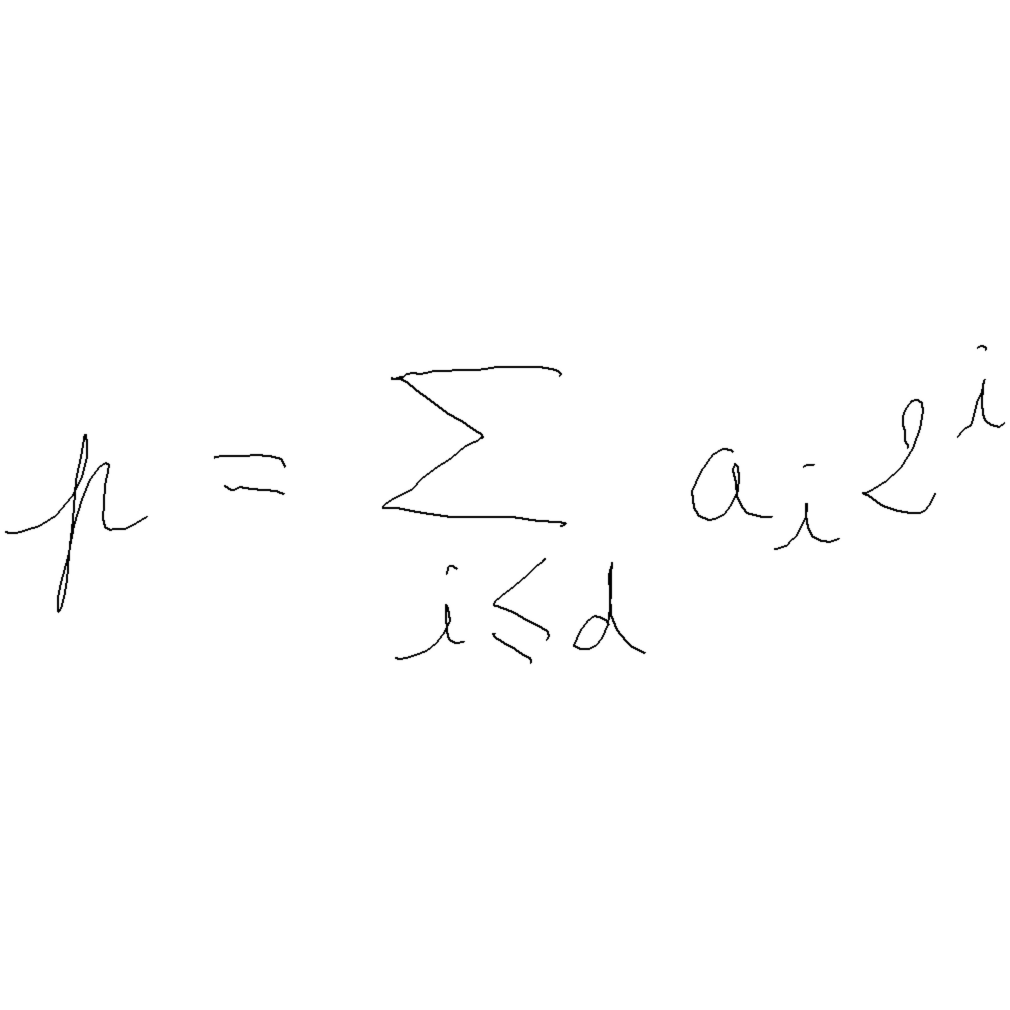 p = \sum_{i \leq d} a_i 2^i